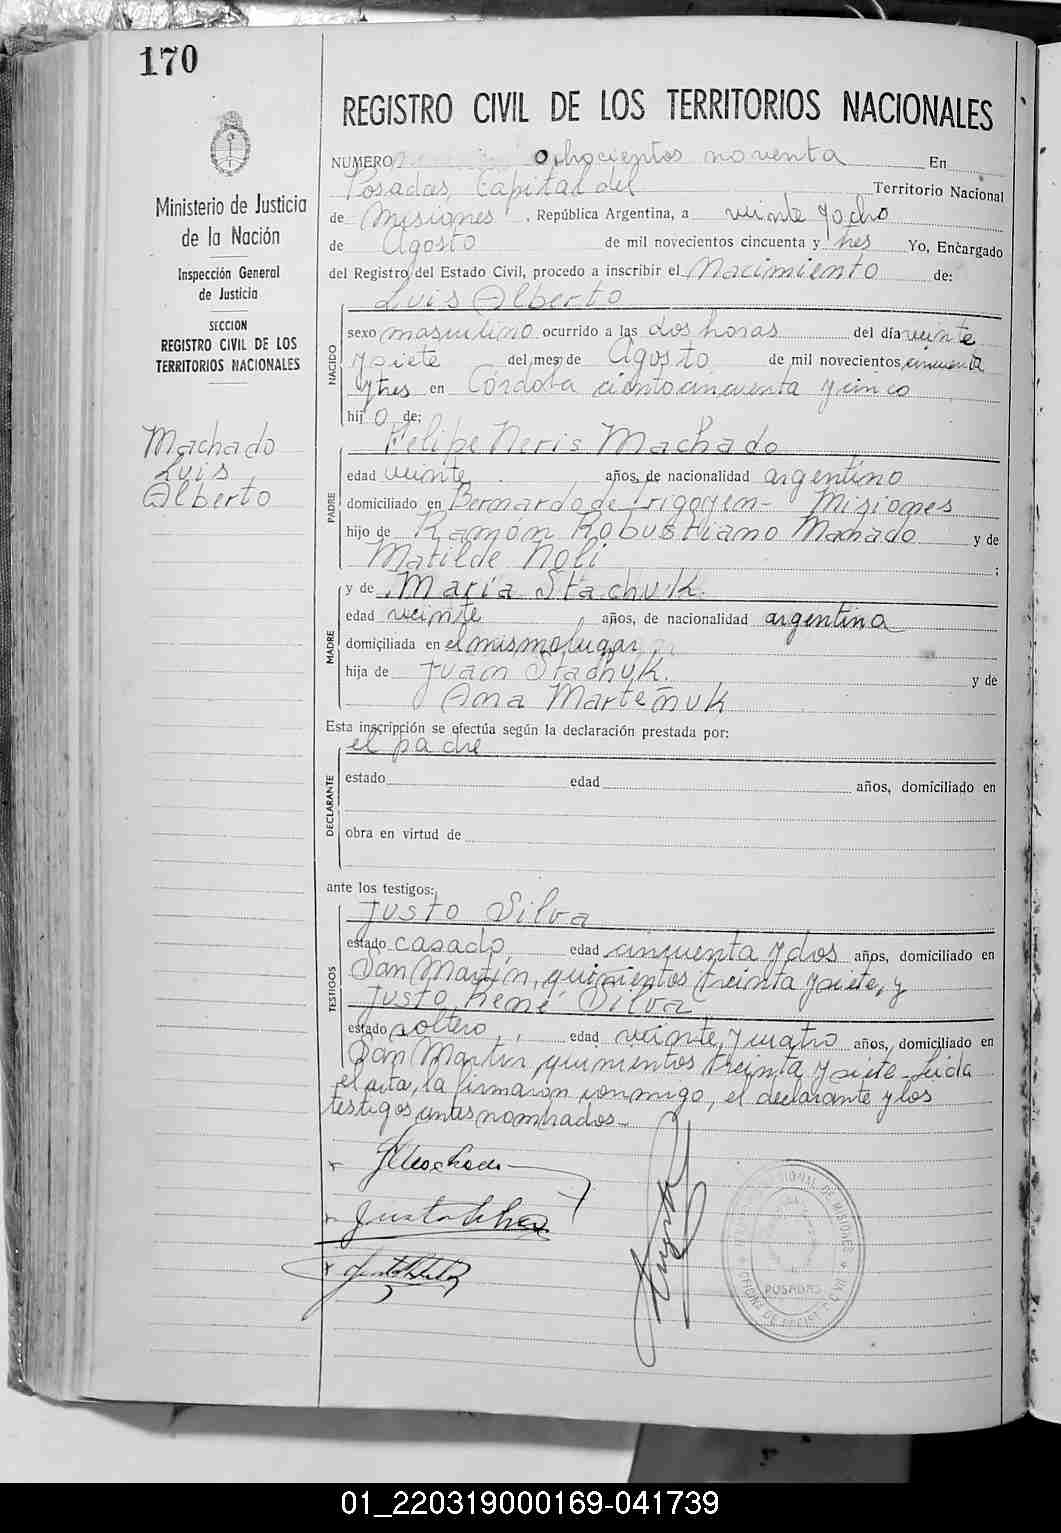 170
REGISTRO CIVIL DE LOS TERRITORIOS NACIONALES
NUMERO ochocientos noventa En
Posadas, Capital del Territorio Nacional
de Misiones, República Argentina, a veinte y ocho
de Agosto de mil novecientos cincuenta y tres Yo, Encargado
del Registro del Estado Civil, procedo a inscribir el Nacimiento de:
Luis Alberto
NACIDO
sexo masculino ocurrido a las dos horas del día veinte
y siete del mes de Agosto de mil novecientos cincuenta
y tres en Córdoba ciento cincuenta y cinco
hijo de:
Felipe Neris Machado
PADRE
edad veinte años, de nacionalidad argentino
domiciliado en Bernardo de Irigoyen - Misiones
hijo de Ramón Robustiano Machado y de
Matilde Noli ;
y de María Stachuk.
MADRE
edad veinte años, de nacionalidad argentina
domiciliada en el mismo lugar
hija de Juan Stachuk. y de
Ana Marteñuk
Esta inscripción se efectúa según la declaración prestada por:
el padre
DECLARANTE
estado edad años, domiciliado en
obra en virtud de
ante los testigos:
Justo Silva
TESTIGOS
estado casado, edad cincuenta y dos años, domiciliado en
San Martín, quinientos treinta y siete, y
Justo René Silva
estado soltero, edad veinte y cuatro años, domiciliado en
San Martín quinientos treinta y siete. Leida
el acta, la firmaron conmigo, el declarante y los
testigos antes nombrados.
Ministerio de Justicia
de la Nación
Inspección General
de Justicia
SECCION
REGISTRO CIVIL DE LOS
TERRITORIOS NACIONALES
Machado
Luis
Alberto
POSADAS
01_220319000169-041739